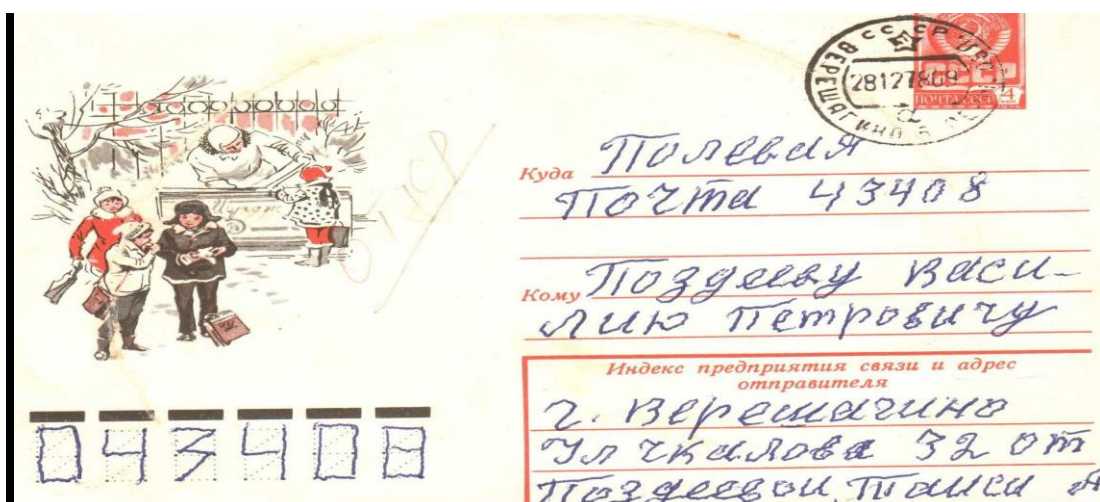 СССР
ВЕРЕЩАГИНО 5
28127809
СССР
ПОЧТА СССР 4
Куда Полевая
Почта 43408
Кому Поздееву Васи-
лию Петровичу
Индекс предприятия связи и адрес
отправителя
г. Верещагино
Ул Чкалова 32 от
Поздеевой Таиси А
043408